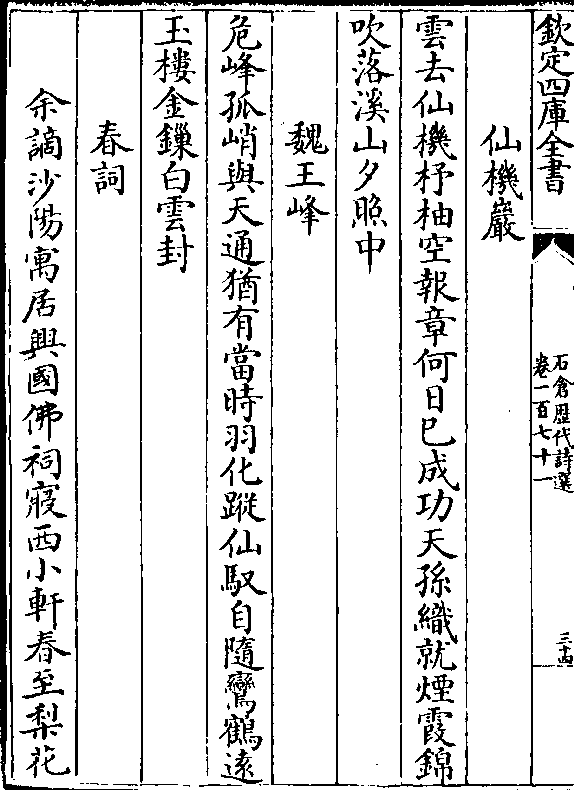 欽定四庫全書
石倉歷代詩選
卷一百七十一
三十四
仙機巖
雲去仙機杼柚空報章何日已成功天孫織就煙霞錦
吹落溪山夕照中
魏王峰
危峰孤峭與天通猶有當時羽化蹤仙馭自隨鸞鶴遠
玉樓金鏁白雲封
春詞
余謫沙陽寓居興國佛祠寢西小軒春至梨花